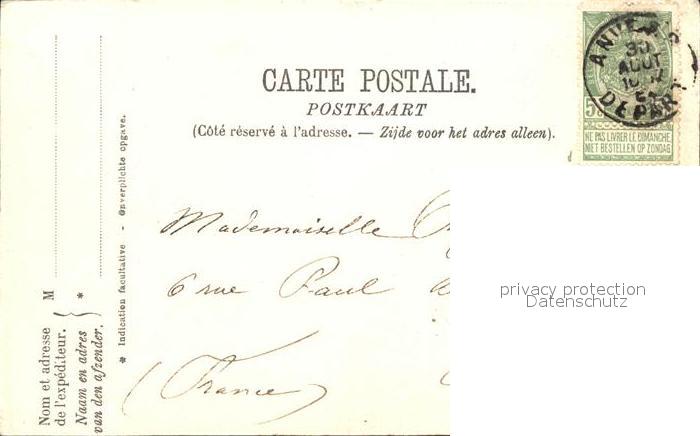 CARTE POSTALE.
POSTKAART
(Côté réservé à l'adresse. — Zijde voor het adres alleen).
30
AOUT
DEPART
NE PAS LIVRER LE DIMANCHE
NIET BESTELLEN OP ZONDAG
Mademoiselle
6 rue Paul
(France)
privacy protection
Datenschutz
M
Nom et adresse
de l'expéditeur.
*
Naam en adres
van den afzender.
* Indication facultative - Onverplichte opgave.